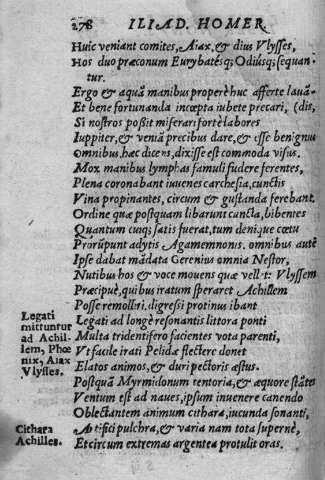 278 ILIAD. HOMER.
Huic veniant comites, Aiax, & dius Vlysses,
Hos duo præconum Eurybatésq; Odiúsq; sequan-
tur.
Ergo & aquā manibus properè huc afferte lauā-
Et bene fortunanda incœpta iubete precari, (dis,
Si nostros possit miserari fortè labores
Iuppiter, & veniā precibus dare, & esse benignus
Omnibus, hæc dicens, dixisse est commoda visus.
Mox manibus lymphas famuli fudere ferentes,
Plena coronabant iuuenes carchesia, cunctis
Vina propinantes, circum & gustanda ferebant.
Ordine quæ postquam libarunt cuncta, bibentes
Quantum cuiq; satis fuerat, tum denique cœtu
Prorúpunt adytis Agamemnonis. omnibus autē
Ipse dabat mādata Gerenius omnia Nestor,
Nutibus hos & voce mouens quæ vellet: Vlyssem
Præcipuè, quibus iratum speraret Achillem
Posse remolliri, digressi protinus ibant
Legati ad longè resonantis littora ponti
Multa tridentifero facientes vota parenti,
Vt facile irati Pelidæ flectere donet
Elatos animos, & duri pectoris æstus.
Postquā Myrmidonum tentoria, & æquore stātes
Ventum est ad naues, ipsum inuenere canendo
Oblectantem animum cithara, iucunda sonanti,
Artifici pulchra, & varia nam tota supernè,
Et circum extremas argentea protulit oras.
Legati
mittuntur
ad Achil-
lem, Phœ
nix, Aiax
Vlysses.
Cithara
Achilles.